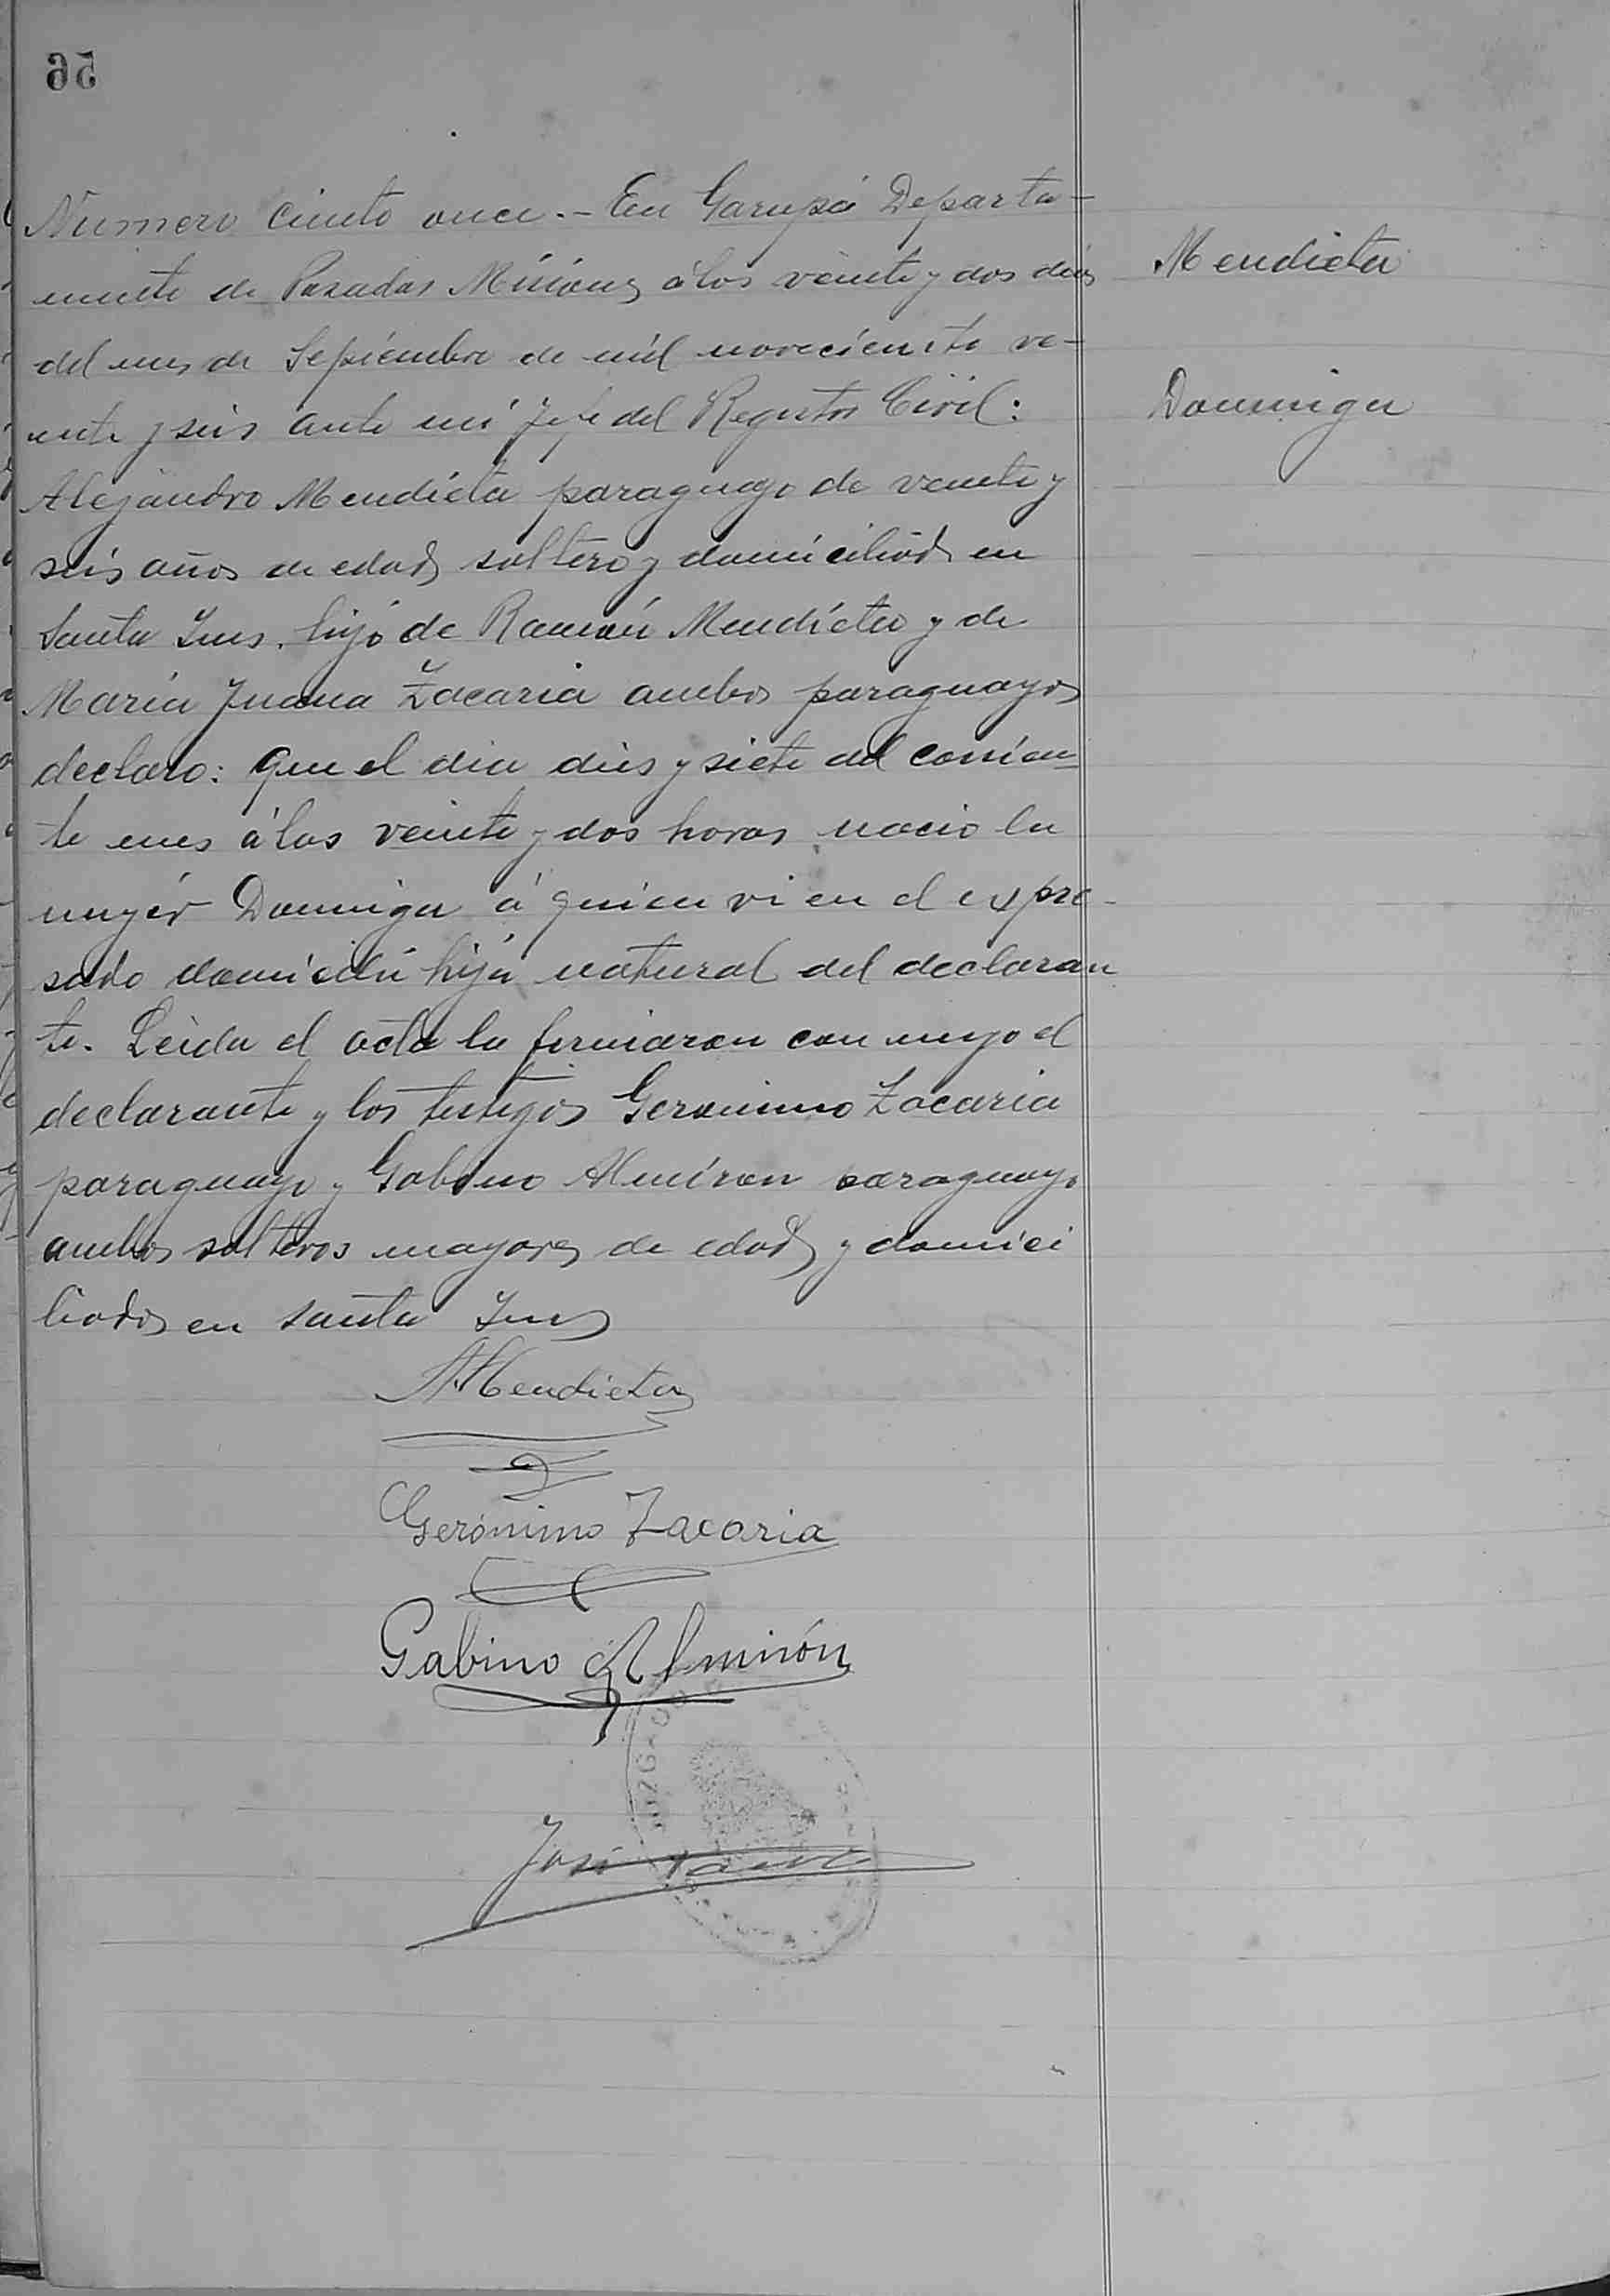 56
Numero ciento once.- En Garupá Departa-
mento de Posadas Misiones á los veinte y dos dias
del mes de Sepiembre de mil noveciento ve-
inte y seis ante mi Jefe del Registro Civil:
Alejandro Mendieta paraguayo de veinte y
seis años de edad, soltero y domiciliado en
Santa Ines. hijo de Ramón Mendieta y de
María Juana Zacaria ambos paraguayos
declaro: Que el dia dies y siete del corrien-
te mes á las veinte y dos horas nacio la
mujer Dominga á quien vi en el expre-
sado domicilio hija natural del declaran
te. Leida el acta la firmaron con migo el
declarante y los testigos Geronimo Zacaria
paraguayo y Gabino Almiron paraguayo
ambos solteros mayores de edad y domici
liados en Santa Ines
Mendieta
Dominga
AMendieta
Gerónimo Zacaria
Gabino Almirón
José